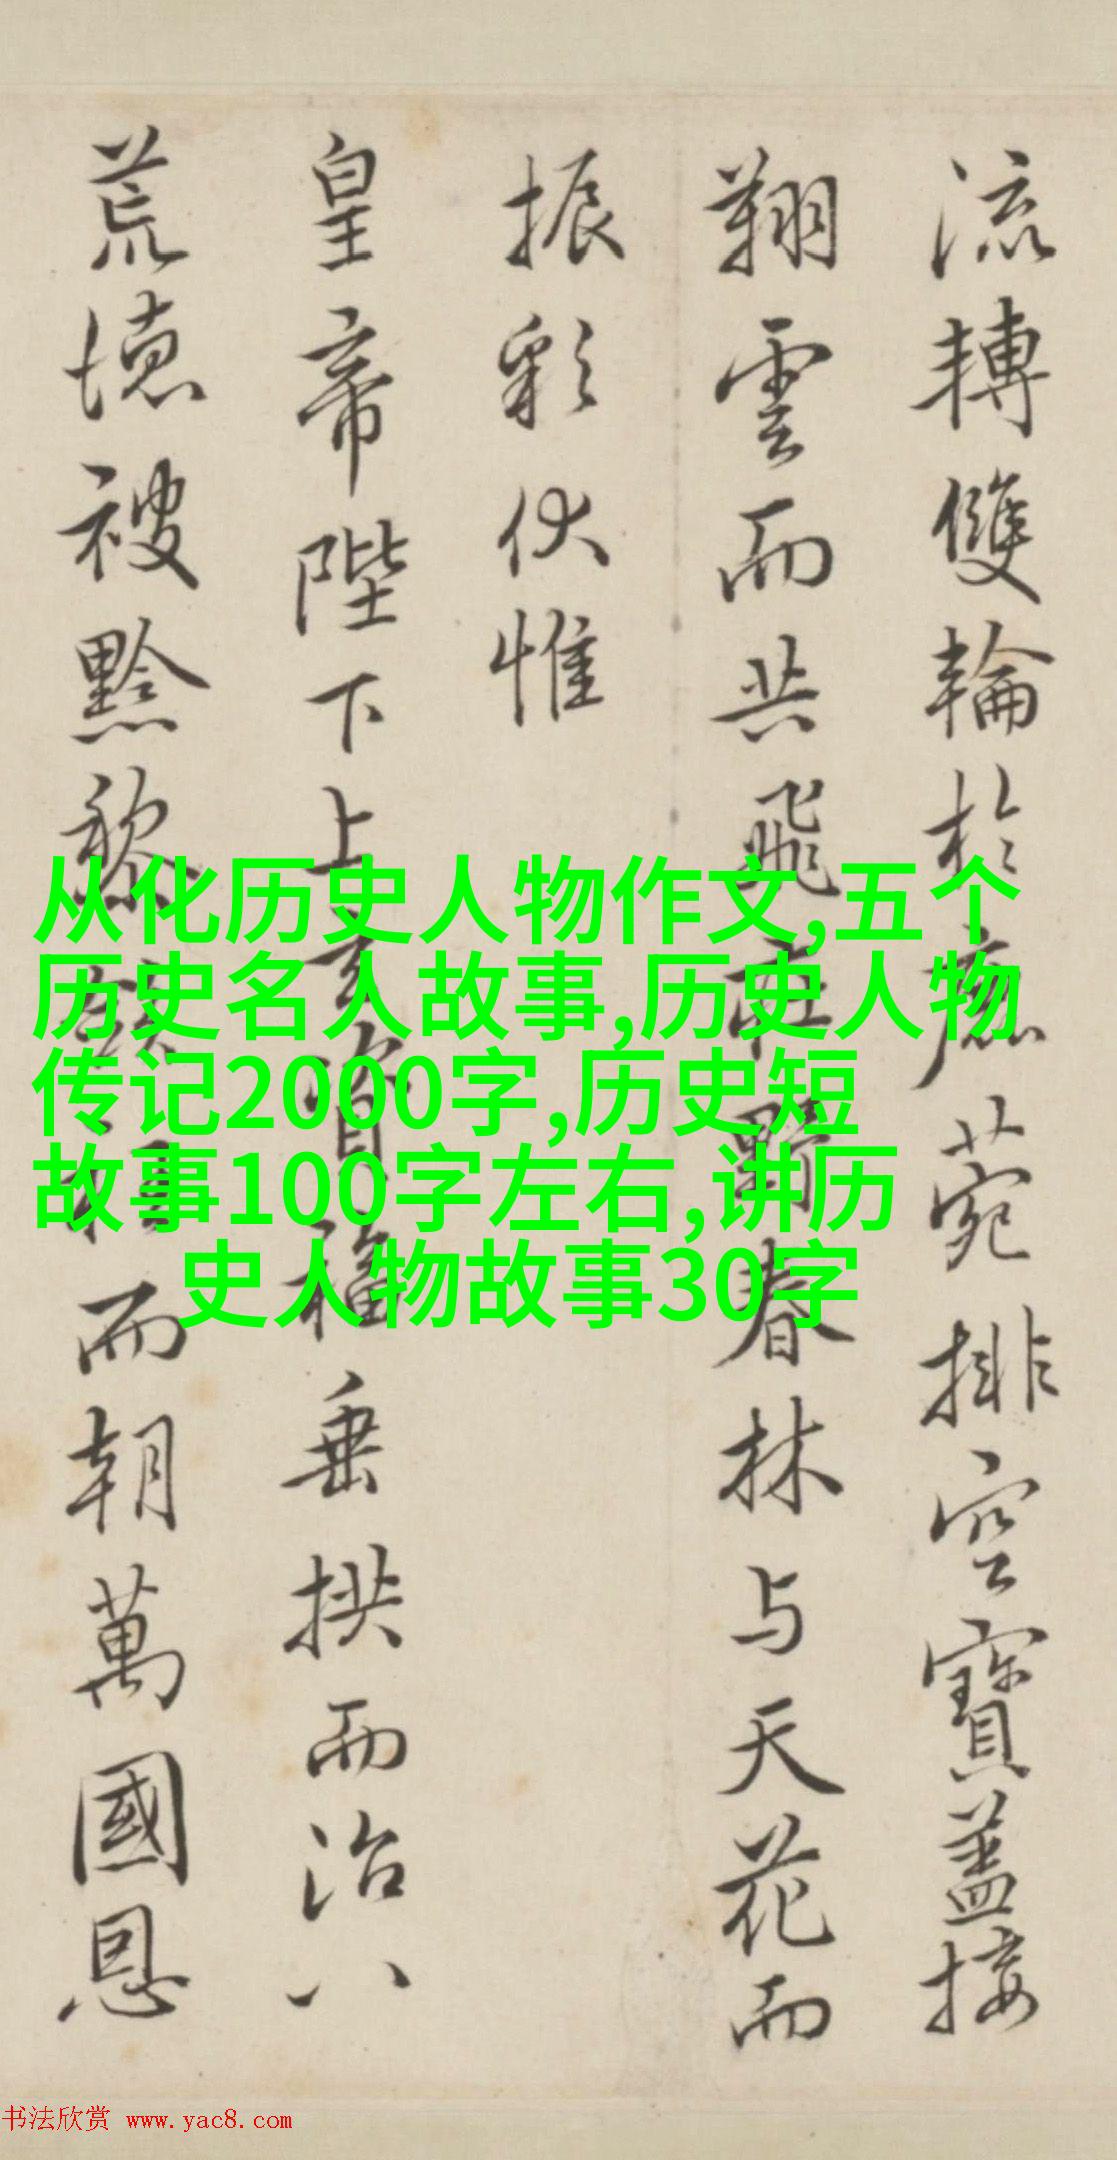 流轉雙輪於鹿菀排空寶蓋接
翔雲而共飛在野春林与天花而
振彩伏惟
皇帝陛下上玄資福垂拱而治八
荒德被黔黎而朝萬國恩
从化历史人物作文,五个
历史名人故事,历史人物
传记2000字,历史短
故事100字左右,讲历
史人物故事30字
书法欣赏 www.yac8.com